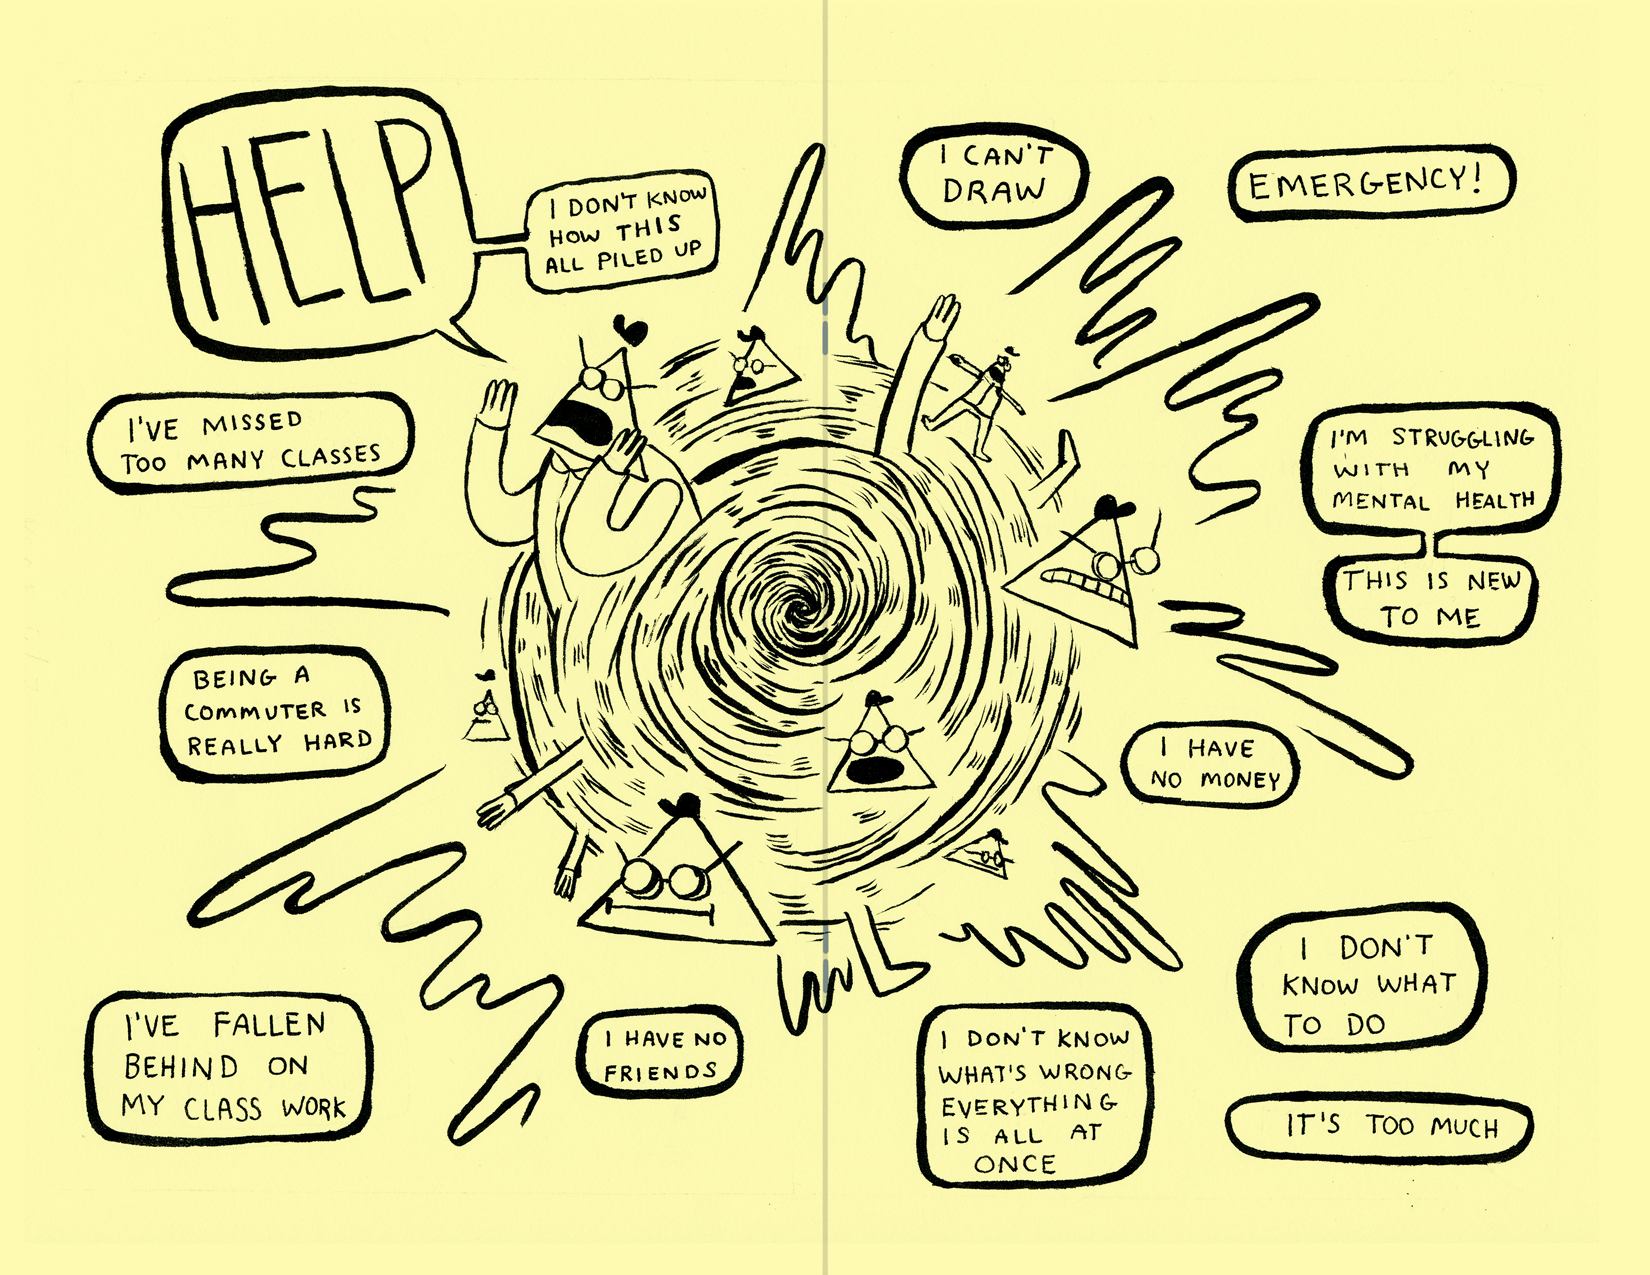 HELP
I DON'T KNOW
HOW THIS
ALL PILED UP
I CAN'T
DRAW
EMERGENCY!
I'VE MISSED
TOO MANY CLASSES
I'M STRUGGLING
WITH MY
MENTAL HEALTH
THIS IS NEW
TO ME
BEING A
COMMUTER IS
REALLY HARD
I HAVE
NO MONEY
I'VE FALLEN
BEHIND ON
MY CLASS WORK
I HAVE NO
FRIENDS
I DON'T KNOW
WHAT'S WRONG
EVERYTHING
IS ALL AT
ONCE
I DON'T
KNOW WHAT
TO DO
IT'S TOO MUCH